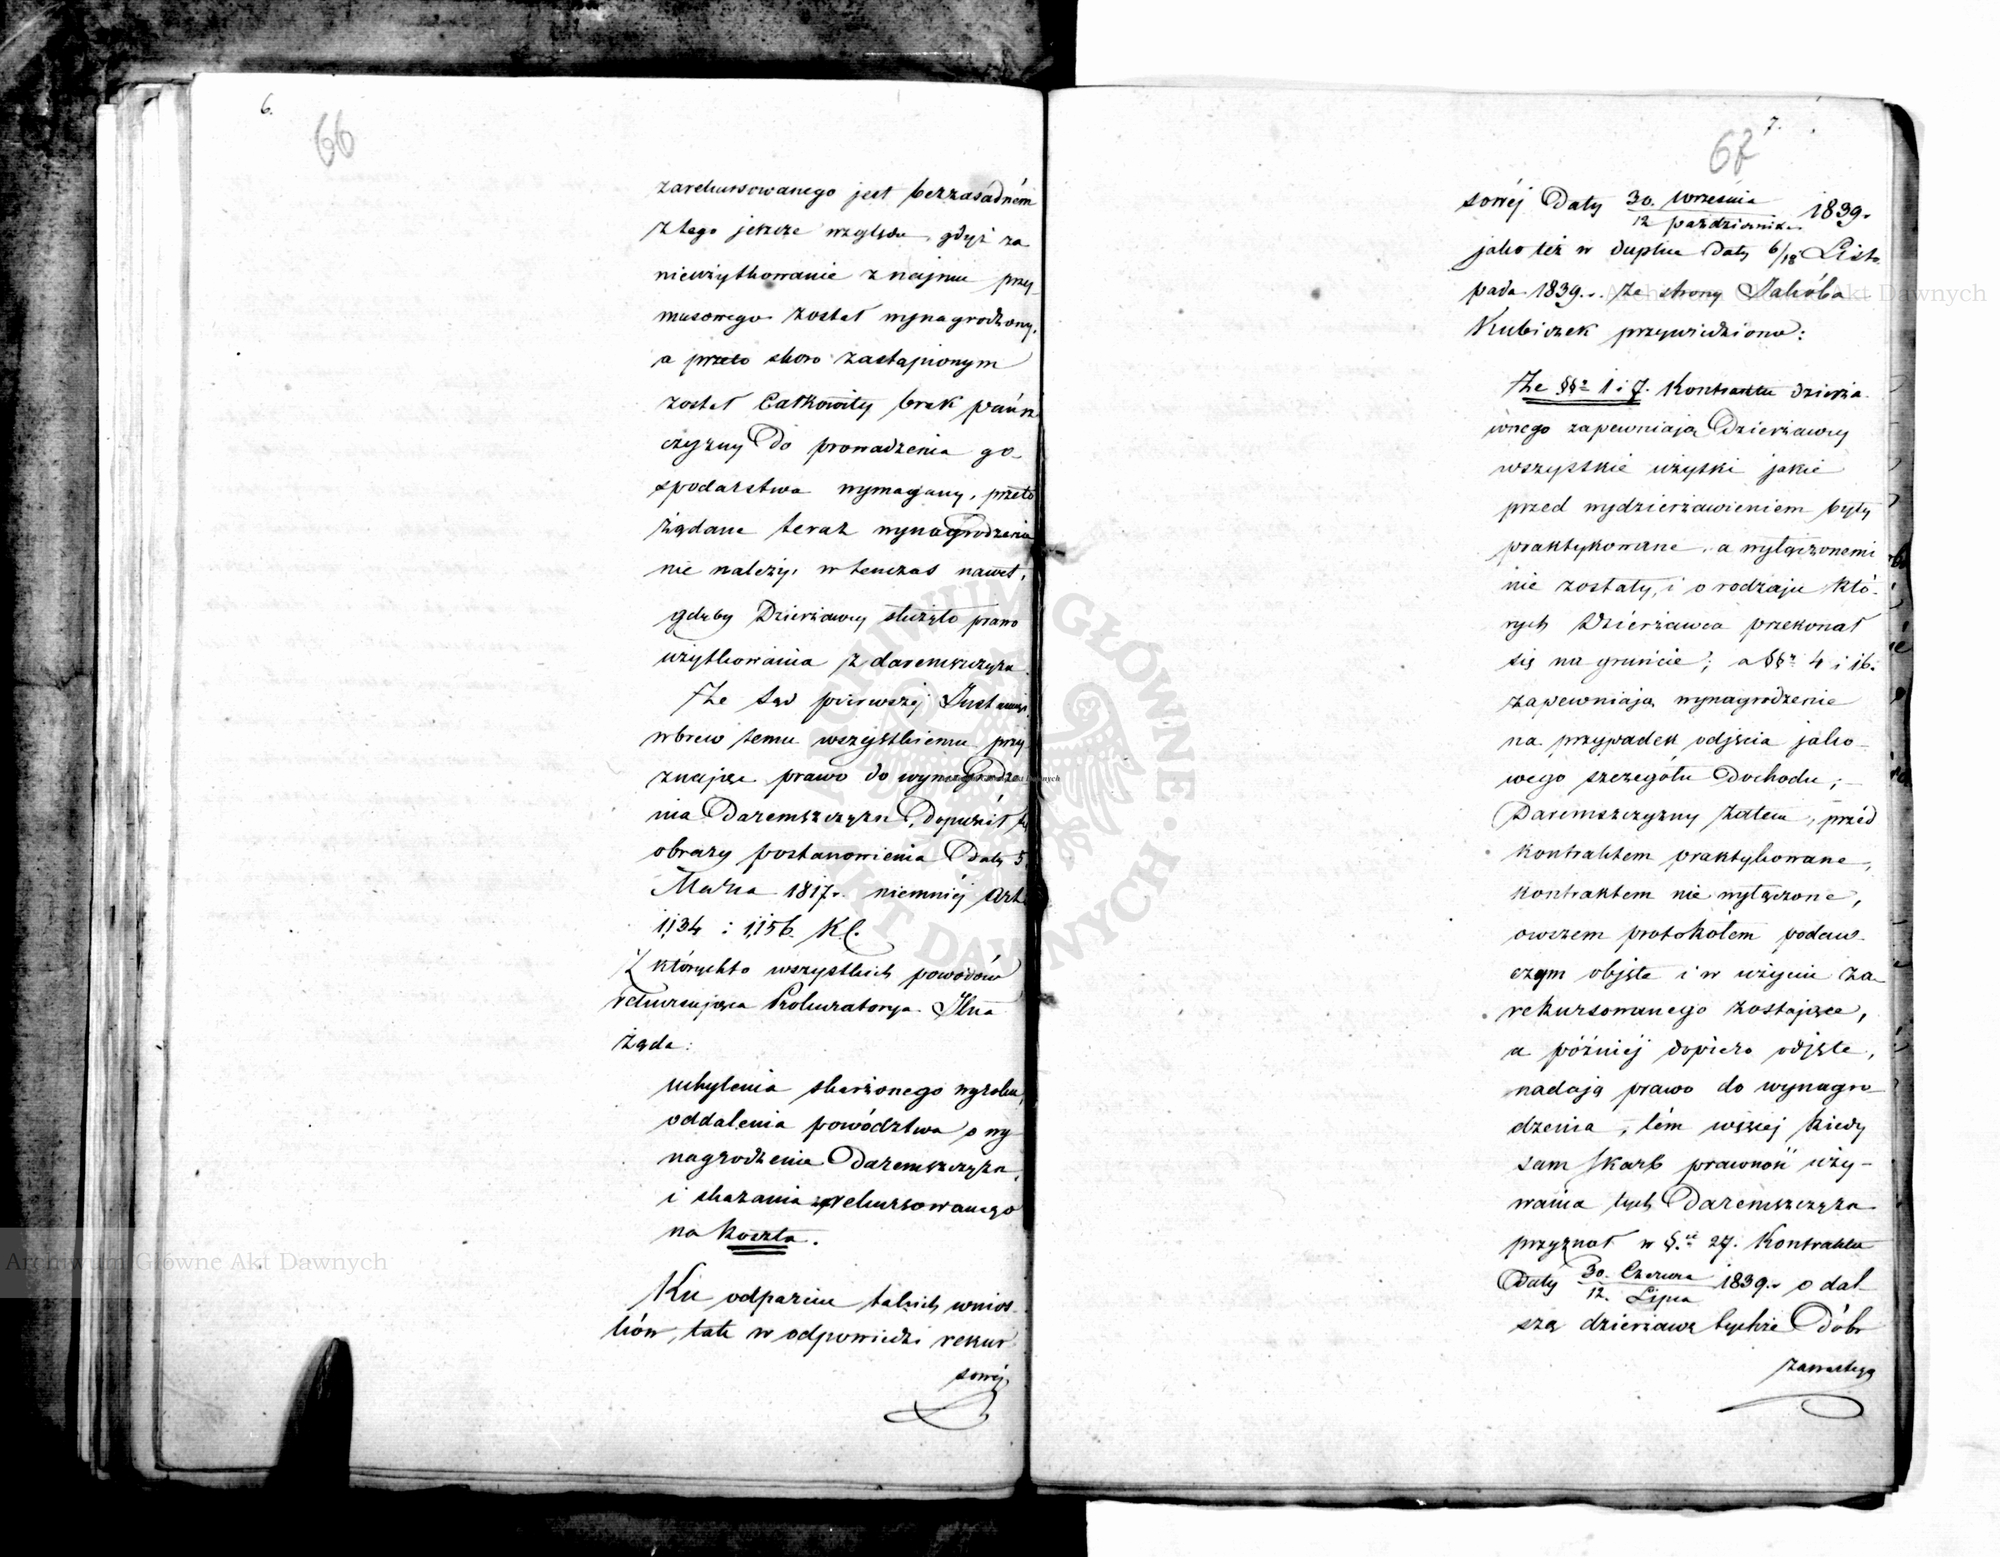 6.
66
zarekursowanego jest bezzasadném
z tego jeszcze względu, gdyż za
nieużytkowanie z najmu przy-
musowego został wynagrodzony,
a przeto skoro zastąpionym
został Całkowity brak pańsz-
czyzny Do prowadzenia go-
spodarstwa wymagany, przeto
żądane teraz wynagrodzenie
nie należy, w tenczas nawet,
gdyby Dzierżawcy służyło prawo
użytkowania z daremszczyzn.
Że Sąd pierwszej Instancyi
wbrew temu wszystkiemu przy-
znając prawo do wynagrodze-
nia Daremszczyzn, Dopuścił się
obrazy postanowienia Daty 5.
Marca 1817r. niemniéj Art.
1,134 i 1,156. KC.
Z którychto wszystkich powodów
rekursująca Prokuratorya Jlna
żąda:
uchylenia skarżonego wyroku,
oddalenia powództwa o wy-
nagrodzenie Daremszczyzn,
i skazania zarekursowanego
na koszta.
Ku odparciu takich wnios-
ków, tak w odpowiedzi rekur-
sowéj,
7.
67
sowéj Daty 30. Września / 12 Października 1839.
jako też w duplice Daty 6/18 Listo-
pada 1839r. Ze strony Jakóba
Kubiczek przywiedziono:
Że §§. 1 i 7. Kontraktu dzierża-
wnego zapewniają Dzierżawcy
wszystkie użytki jakie
przed wydzierżawieniem były
praktykowane, a wyłączonemi
nie zostały, i o rodzaju któ-
rych Dzierżawca przekonał
się na gruncie; a §§. 4 i 16.
zapewniają wynagrodzenie
na przypadek odjęcia jako-
wego szczegółu Dochodu;
Daremszczyzny zatem, przed
kontraktem praktykowane,
kontraktem nie wyłączone,
owszem protokółem podaw-
czym objęte i w użyciu za-
rekursowanego zostające,
a późniéj dopiero odjęte,
nadają prawo do wynagro-
dzenia, tém więcej kiedy
sam Skarb prawność uży-
wania tych Daremszczyzn
przyznał w §. 27. Kontraktu
Daty 30. Czerwca / 12. Lipca 1839r. o dal-
szą dzierżawę tychże Dóbr
zawartego